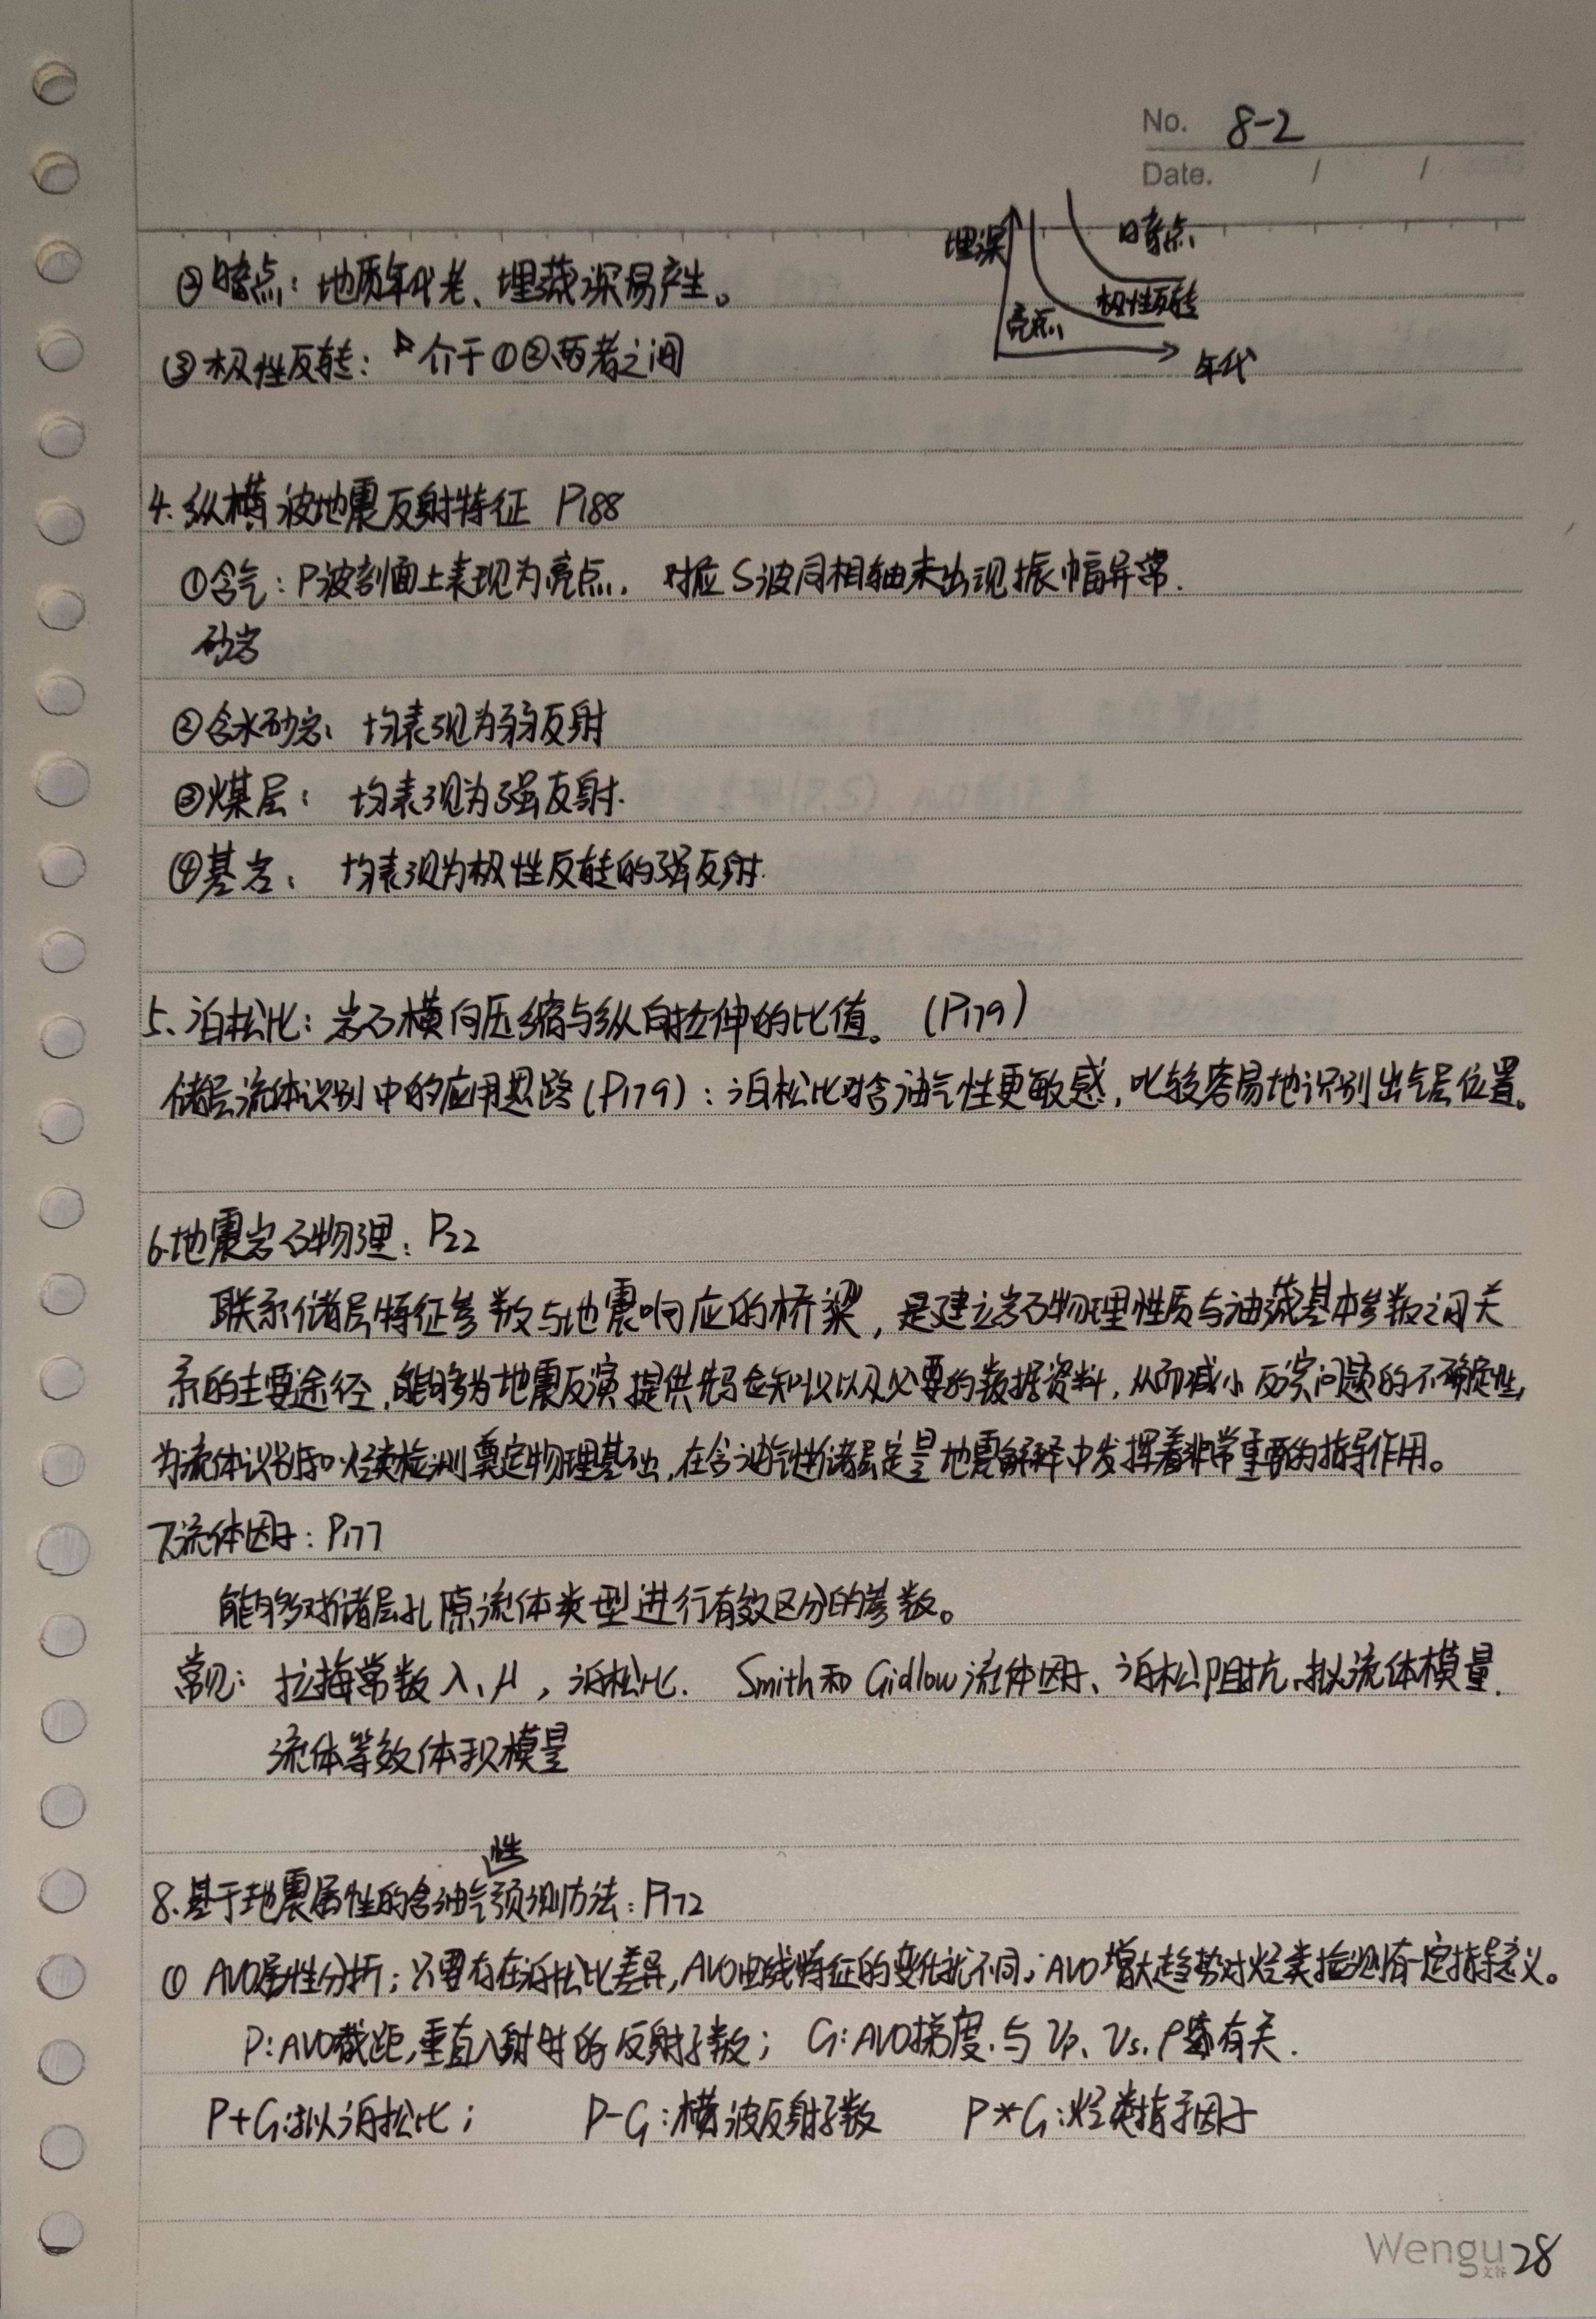 No. 8-2
Date. / /
埋深
暗点
极性反转
亮点
年代
②暗点：地质年代老、埋藏深易产生。
③极性反转：介于①②两者之间
4.纵横波地震反射特征 P188
①含气：P波剖面上表现为亮点，对应S波同相轴未出现振幅异常.
砂岩
②含水砂岩：均表现为弱反射
③煤层：均表现为强反射.
④基岩：均表现为极性反转的强反射.
5、泊松比：岩石横向压缩与纵向拉伸的比值。(P179)
储层流体识别中的应用思路(P179)：泊松比对含油气性更敏感,比较容易地识别出气层位置。
6.地震岩石物理：P22
联系储层特征参数与地震响应的桥梁，是建立岩石物理性质与油藏基本参数之间关
系的主要途径,能够为地震反演提供先验知识以及必要的数据资料，从而减小反演问题的不确定性,
为流体识别和烃类检测奠定物理基础,在含油气性储层定量地震解释中发挥着非常重要的指导作用。
7.流体因子：P177
能够对储层孔隙流体类型进行有效区分的参数。
常见：拉梅常数λ、μ，泊松比.Smith和Gidlow流体因子、泊松阻抗、拟流体模量.
流体等效体积模量
性
8.基于地震属性的含油气预测方法：P172
① AVO属性分析：只要存在泊松比差异,AVO曲线特征的变化就不同。AVO增大趋势对烃类检测有一定指导意义。
P:AVO截距,垂直入射时的反射系数；G:AVO梯度.与Vp、Vs、ρ有关.
P+G:拟泊松比； P-G:横波反射系数 P*G:烃类指示因子
Wengu 28
文谷